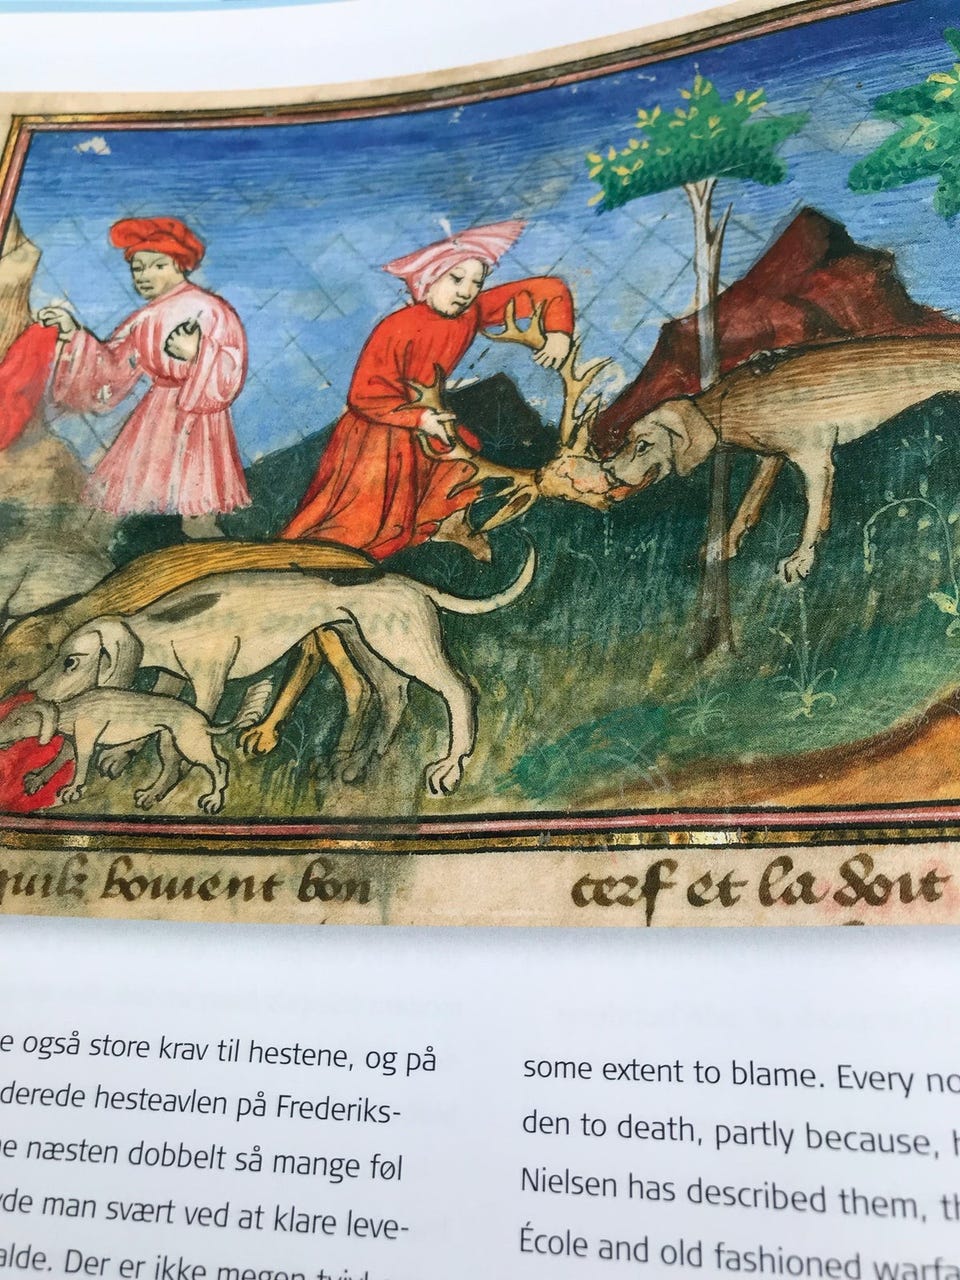 bon
cerf et la doit
e også store krav til hestene, og på
derede hesteavlen på Frederiks-
e næsten dobbelt så mange føl
de man svært ved at klare leve-
alde. Der er ikke megen
some extent to blame. Every no
den to death, partly because, h
Nielsen has described them, th
École and old fashioned warfa